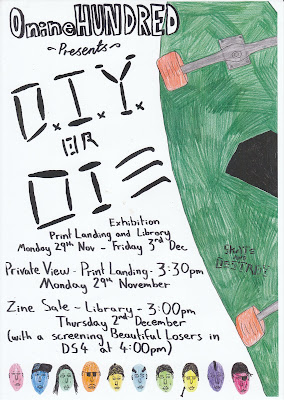 OnineHUNDRED
~Presents~
D.I.Y.
OR
DIE
Exhibition
Print Landing and Library
Monday 29th Nov - Friday 3rd Dec
Private View - Print Landing - 3:30pm
Monday 29th November
Zine Sale - Library - 3:00pm
Thursday 2nd December
(with a screening Beautiful Losers in
DS4 at 4:00pm)
SKATE
AND
DESTROY